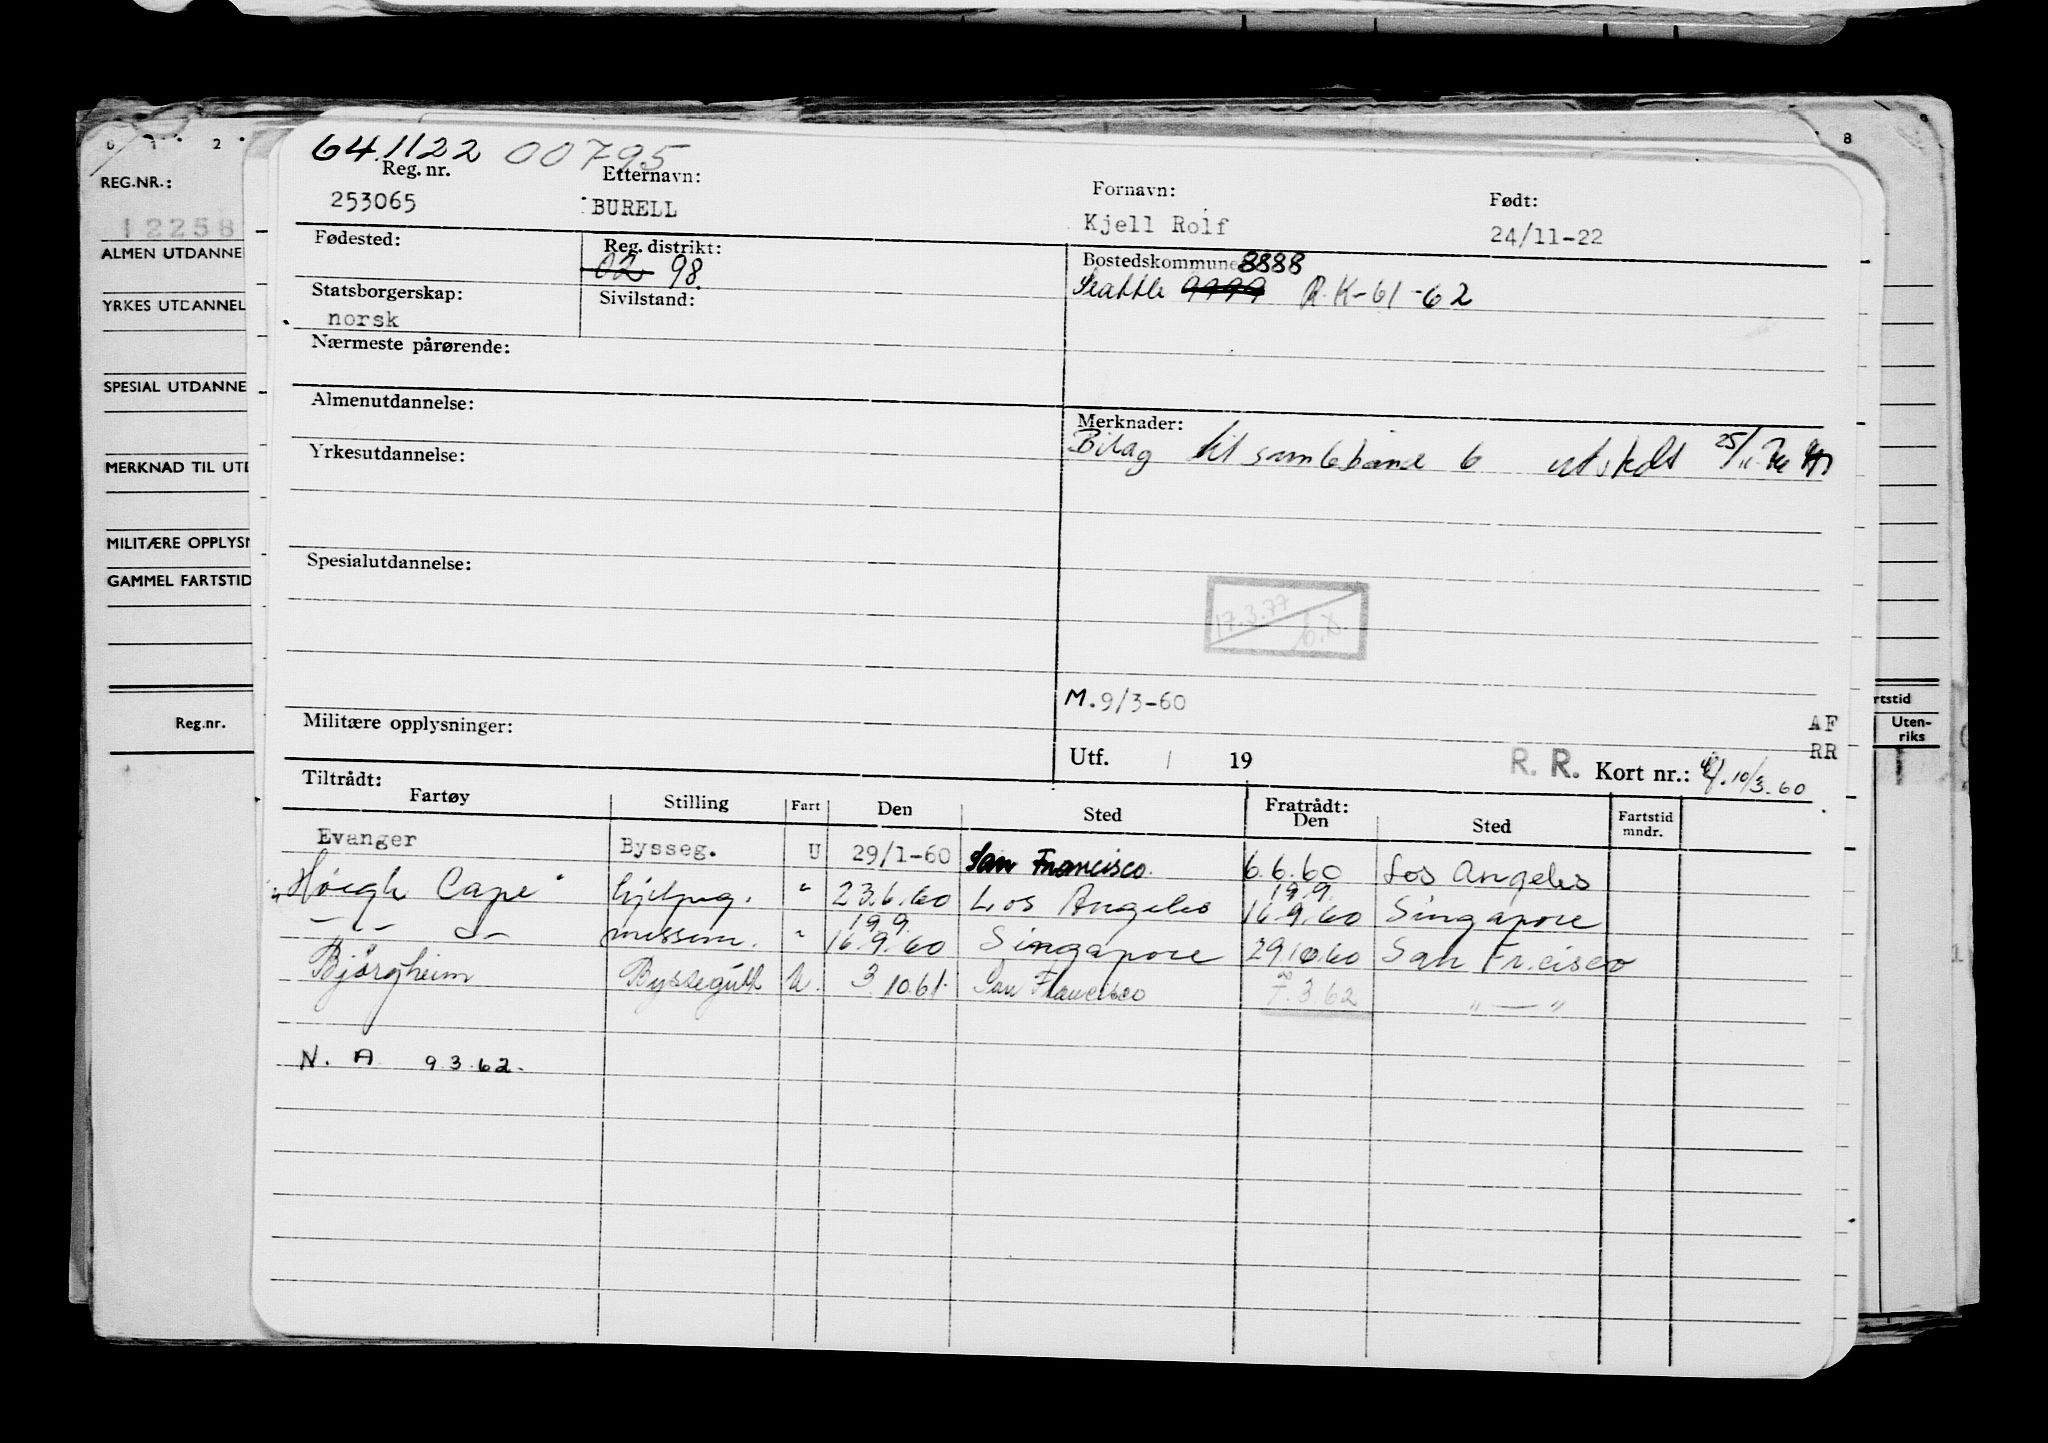 64.1122 00795
Reg. nr. Etternavn: Fornavn: Født:
253065 BURELL Kjell Rolf 24/11-22
Fødested: Reg. distrikt: Bostedskommune 8888
02 98. Seattle 9999 R.K-61-62
Statsborgerskap: Sivilstand:
norsk
Nærmeste pårørende:
Almenutdannelse: Merknader:
Bilag til samleband 6 utstedt 25/11
Yrkesutdannelse:
Spesialutdannelse:
17.3.77
M. 9/3-60
Militære opplysninger: AF
Utf. / 19 R. R. Kort nr.: 10/3.60 RR
Tiltrådt: Fratrådt:
Fartøy Stilling Fart Den Sted Den Sted Fartstid mndr.
Evanger Bysseg. U 29/1-60 San Francisco. 6.6.60 Los Angeles
"Høegh Cape" hjelpeg. " 23.6.60 Los Angeles 16.9.60 19.9. Singapore
messem. " 16.9.60 19.9. Singapore 29.10.60 San Fr.cisco
Bjørgheim Byssegutt U. 3.10.61. San Francisco 7.3.62 " — "
N. A 9.3.62.
0 1 2 8
REG.NR.:
12258
ALMEN UTDANNE
YRKES UTDANNEL
SPESIAL UTDANNE
MERKNAD TIL UTD
MILITÆRE OPPLYSN
GAMMEL FARTSTID
Reg.nr.
rtstid
Uten-
riks